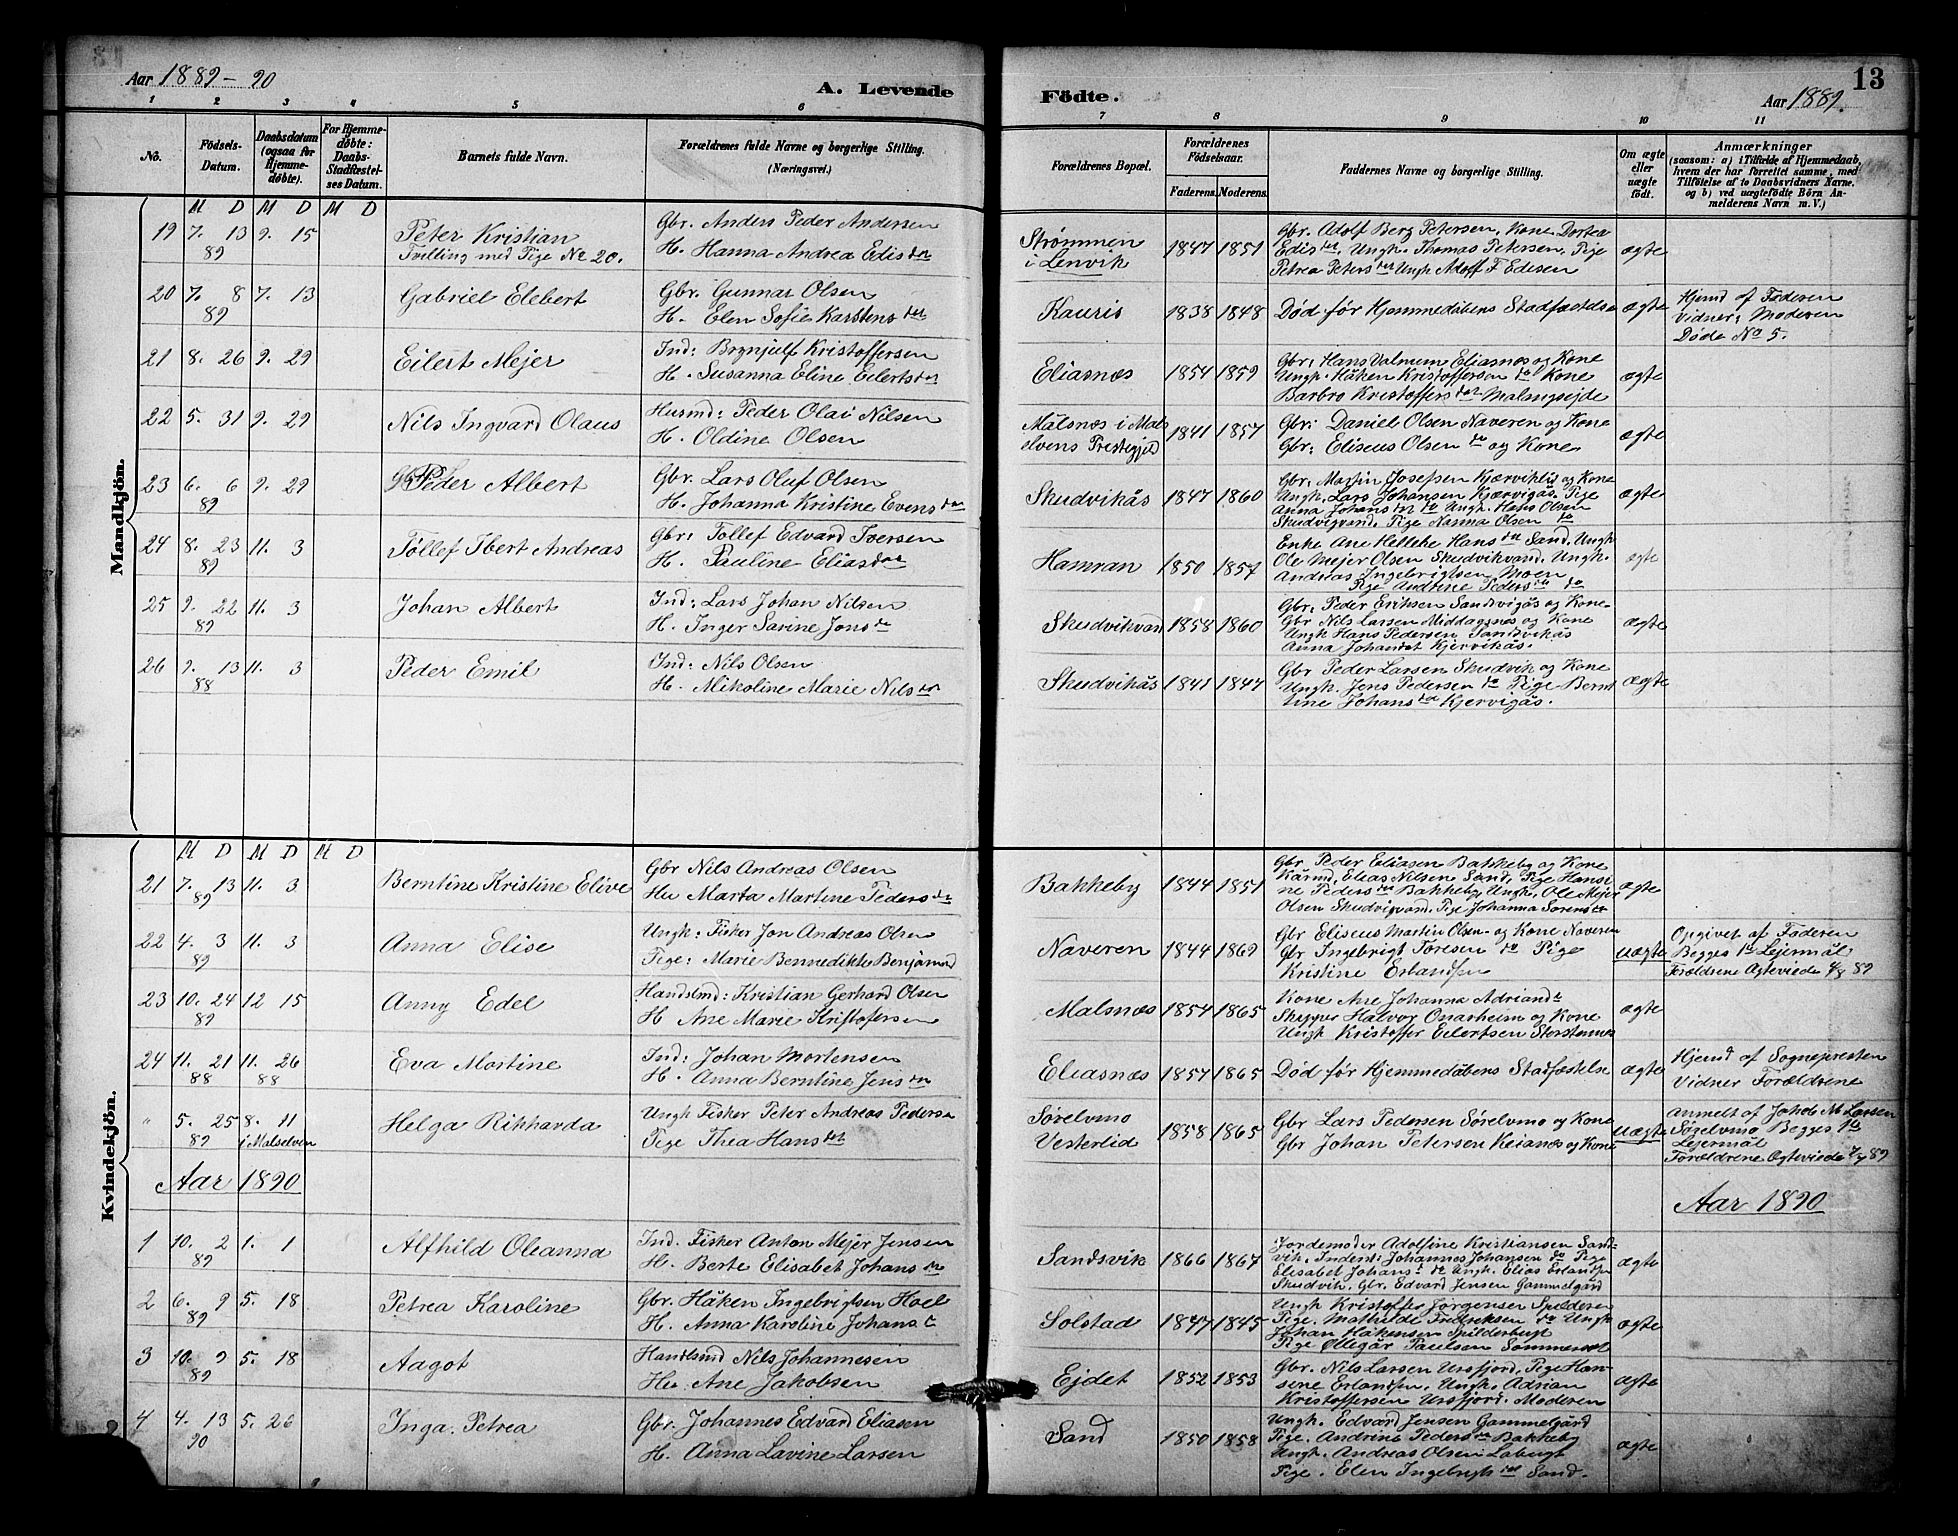 Aar 1889-90
A. Levende
Födte.
13
Aar 1889.
1 2 3 4 5 6 7 8 9 10 11
No.
Födsels-
Datum.
Daabsdatum
(ogsaa for
Hjemme-
döbte).
For Hjemme-
döbte:
Daabs-
Stadfæstel-
ses Datum.
Barnets fulde Navn.
Forældrenes fulde Navne og borgerlige Stilling.
(Næringsvei.)
Forældrenes Bopæl.
Forældrenes
Födselsaar.
Faderens. Moderens.
Faddernes Navne og borgerlige Stilling.
Om ægte
eller
uægte
födt.
Anmærkninger
(saasom: a) i Tilfælde af Hjemmedaab,
hvem der har forrettet samme, med
Tilföielse af to Daabsvidners Navne,
og b) ved uægtefödte Börn An-
melderens Navn m. V.)
Mandkjön.
M D M D M D
19 7. 13 9. 15
89
Peter Kristian
Tvilling med Pige No 20.
Gbr. Anders Peder Andersen
H. Hanna Andrea Edisdtr
Strømmen
i Lenvik
1847 1851
Gbr. Adolf Berg Petersen, Kone Dortea
Edisdtr, Ungk. Thomas Petersen, Pige
Petrea Petersdtr Ungk Adolf F Edisen
ægte
20 7. 8 7. 13
89
Gabriel Elebert
Gbr. Gunnar Olsen
H. Elen Sofie Karstensdtr
Kauris
1838 1848
Død før Hjemmedåbens Stadfæstelse
ægte
Hjemd af Faderen
Vidner: Moderen
Døde No 5.
21 8. 26 9. 29
Eilert Mejer
Ind: Brynjulf Kristoffersen
H. Susanna Eline Eilertsdtr
Eliasnæs
1854 1859
Gbr: Hans Valnum Eliasnæs og Kone
Ungk. Håken Kristoffersen do Kone
Barbro Kristoffersdtr Malangsejde
ægte
22 5. 31 9. 29
Nils Ingvard Olaus
Husmd: Peder Olai Nilsen
H. Oldine Olsen
Målsnæs i Mals
elvens Prestegjeld
1841 1857
Gbr: Daniel Olsen Naveren og Kone
Gbr: Eliseus Olsen do og Kone
ægte
23 6. 6 9. 29
89
Peder Albert
Gbr. Lars Oluf Olsen
H. Johanna Kristine Evensdtr
Skudvikås
1847 1860
Gbr. Martin Josefsen Kjærviklis og Kone
Ungk. Lars Johansen Kjærvigås. Pige
Anna Johansdtr do Ungk. Hans Olsen
Skudvigvand. Pige Nanna Olsen do
ægte
24 8. 23 11. 3
89
Tollef Ibert Andreas
Gbr: Tollef Edvard Iversen
H. Pauline Eliasdtr
Hamran
1850 1857
Enke Ane Helleke Hansdtr Sand. Ungk
Ole Mejer Olsen Skudvikvand. Ungk.
Andreas Ingebrigtsen Moen
Pige Andrine Pedersdtr do
ægte
25 9. 22 11. 3
89
Johan Albert
Ind: Lars Johan Nilsen
H. Inger Sarine Jonsdtr
Skudvikvand
1858 1860
Gbr: Peder Eriksen Sandvigås og Kone
Gbr Nils Larsen Middagsnæs og Kone
Ungk Hans Pedersen Sandvikås
Anna Johansdt Kjervikås.
ægte
26 9. 13 11. 3
88
Peder Emil
Ind: Nils Olsen
H. Nikoline Marie Nilsdtr
Skudvikås
1841 1847
Gbr Peder Larsen Skudvik og Kone
Ungk. Jens Pedersen do Pige Bernt
tine Johansdtr Kjervigås.
ægte
Kvindekjön.
M D M D M D
21 7. 13 11. 3
89
Berntine Kristine Elive
Gbr Nils Andreas Olsen
Hu Marta Martine Pedersdtr
Bakkeby
1844 1851
Gbr Peder Eliasen Bakkeby og Kone
Kårmd. Elias Nilsen Sand, Pige Hansi
ne Pedersdtr Bakkeby, Ungk. Ole Mejer
Olsen Skudvigvand. Pige Johanna Sørensdtr
ægte
22 4. 3 11. 3
89
Anna Elise
Ungk: Fisker Jon Andreas Olsen
Pige: Marie Bennedikte Benjamind
Naveren
1844 1869
Gbr Eliseus Martin Olsen og Kone Naveren
Gbr Ingebrigt Toresen do Pige
Kristine Erlandsen
uægte
Opgivet af Faderen
Begges 1te Lejermål
Forældrene Ægteviede 4/8 89
23 10. 24 12 15
89
Anny Edel
Handlsmd: Kristian Gerhard Olsen
H Ane Marie Kristofersen
Malsnæs
1854 1865
Kone Ane Johanna Adriandtr
Skipper Halvor Onarheim og Kone
Ungk Kristoffer Eilertsen Storstennæs
ægte
24 11. 21 11. 26
88 88
Eva Martine
Ind: Johan Mortensen
H. Anna Berntine Jensdtr
Eliasnæs
1857 1865
Død før Hjemmedåbens Stadfæstelse
ægte
Hjemd af Sognepresten
Vidner Forældrene
" 5. 25 8. 11
89 i Malselven
Helga Rikharda
Ungk Fisker Peter Andreas Pedersen
Pige Thea Hansdtr
Sørelvmo
Vesterlid
1858 1865
Gbr Lars Pedersen Sørelvmo og Kone
Gbr Johan Petersen Keianæs og Kone
uægte
Anmelt af Jakob M Larsen
Sørelvmo Begges 1te
Lejermål
Forældrene Ægteviede 7/7 89
Aar 1890
Aar 1890
1 10. 2 1. 1
89
Alfhild Oleanna
Ind. Fisker Anton Mejer Jensen
H. Berte Elisabet Johansdtr
Sandsvik
1866 1867
Jordemoder Adolfine Kristiansen Sand-
vik. Inderst: Johannes Johansen do Pige
Elisabet Johansdtr do Ungk. Elias Erlandsen
Skudvik. Gbr. Edvard Jensen Gammelgård
ægte
2 6. 9 5. 18
89
Petrea Karoline
Gbr. Håken Ingebrigtsen Hoel
H. Anna Karoline Johansdtr
Solstad
1847 1845
Ungk Kristoffer Jørgensen Spilderen
Pige. Mathilde Fredriksen do Ungk
Johan Håkensen Spilderbugt
Pige Ollegår Paulsen Sommersæt
ægte
3 10. 9 5. 18
89
Aagot
Handlsmd Nils Johannesen
Hu. Ane Jakobsen
Ejdet
1852 1853
Gbr. Nils Larsen Ursfjord. Pige Han-
sene Erlandsen. Ungk. Adrian
Kristoffersen Ursfjord. Moderen
ægte
4 4. 13 5. 26
90
Inga. Petrea
Gbr. Johannes Edvard Eliasen
H. Anna Lavine Larsen
Sand
1850 1858
Ungk. Edvard Jensen Gammelgård
Pige. Andrine Pedersdtr Bakkeby
Ungk. Andreas Olsen Labugt
Pige. Elen Ingebrigtsdtr Sand.
ægte